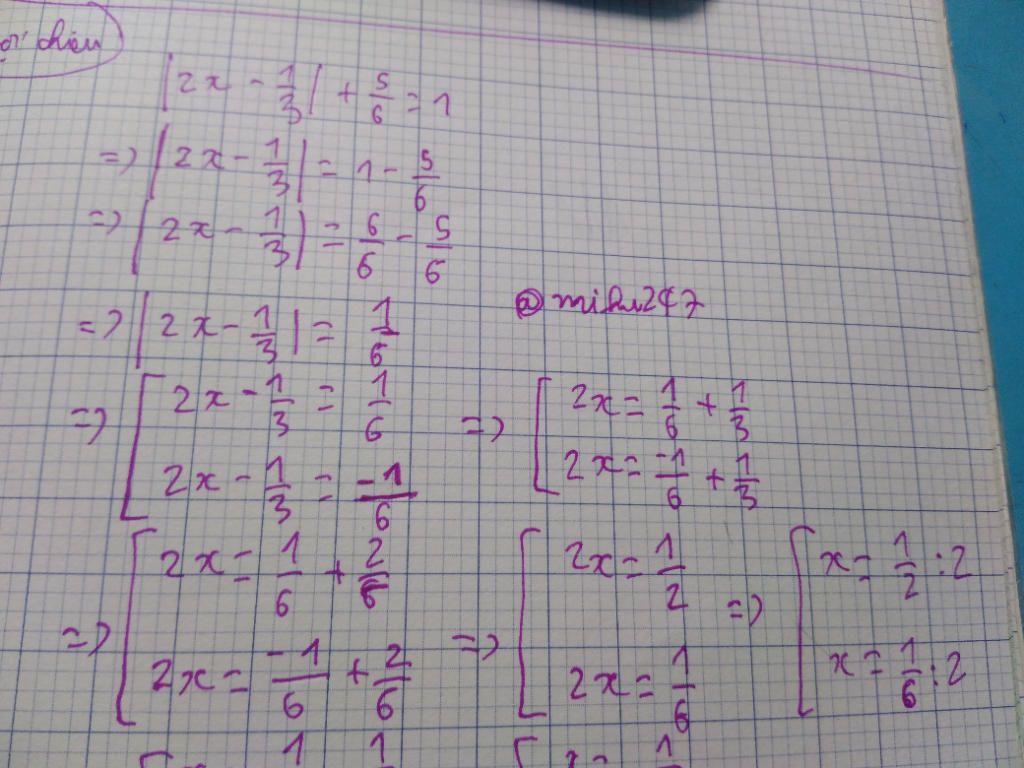 |2x - 1/3| + 5/6 = 1
=> |2x - 1/3| = 1 - 5/6
=> |2x - 1/3| = 6/6 - 5/6
=> |2x - 1/3| = 1/6
=> [ 2x - 1/3 = 1/6
2x - 1/3 = -1/6
=> [ 2x = 1/6 + 1/3
2x = -1/6 + 1/3
=> [ 2x = 1/6 + 2/6
2x = -1/6 + 2/6
=> [ 2x = 1/2
2x = 1/6
=> [ x = 1/2 : 2
x = 1/6 : 2